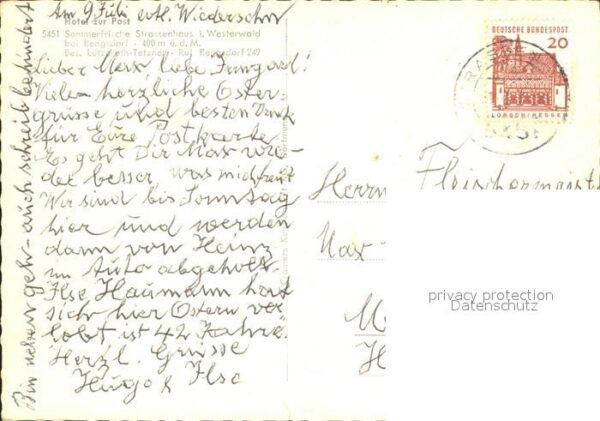 Am 9. Juli evtl. Wiedersehn
Hotel zur Post
5451 Sommerfrische Strassenhaus i. Westerwald
bei Rengsdorf - 400 m ü. d. M.
Bes. Lützeroth-Tetzner Ruf Rengsdorf 249
Lieber Max, liebe Irmgard!
Viele herzliche Oster-
grüsse und besten Dank
für Eure Postkarte.
Es geht Dir Max wie-
der besser, was mich freut
Wir sind bis Sonntag
hier und werden
dann von Heinz
im Auto abgeholt.
Ilse Haumann hat
sich hier Ostern ver-
lobt ist 42 Jahre.
Herzl. Grüsse
Hugo & Ilse
Bin neben geh- auch schreib behindert
DEUTSCHE BUNDESPOST
20
LORSCH/HESSEN
Herrn
Fleischermeist
Max
privacy protection
Datenschutz